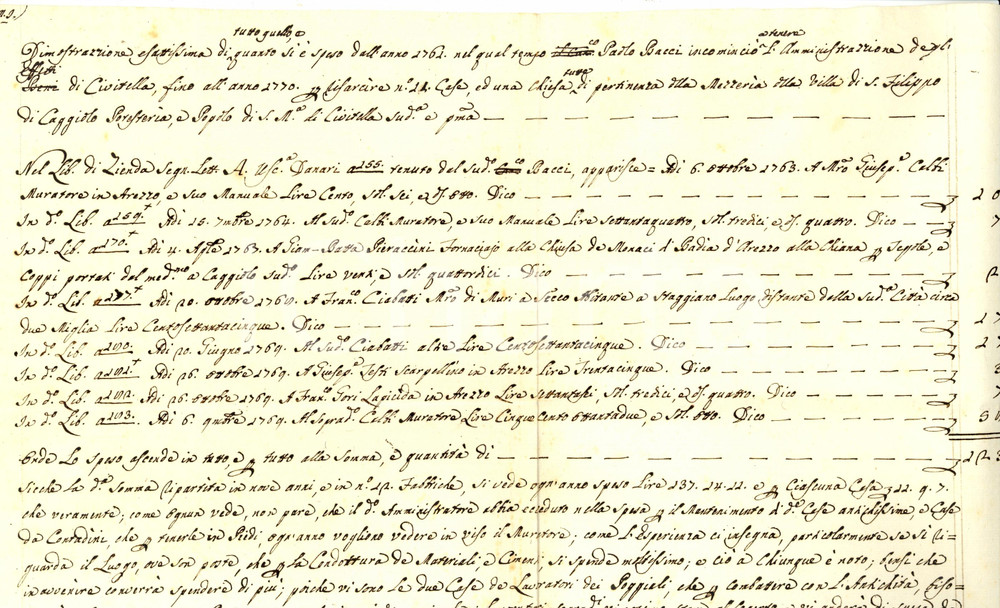 tutto quello, e a tenere
Dimostrazione esattissima di quanto si è speso dall'anno 1762. nel qual tempo Paolo Bacci incominciò l'Amministrazione degli
Effetti
Beni di Civitella, fino all'anno 1770. p risarcire n.º 12. Case, ed una Chiesa, tutte di pertinenza della Mezzeria della Villa di S. Filippo
di Caggiolo Foresteria, e Popolo di S. M.ª di Civitella Sud.ª e pma —
Nel Lib. di Zienda Segn. Lett. A. Usc.ª Danari a 155. tenuto dal Sud.º Bacci, apparisce = Adì 6. Ottobre 1763. A Mro Giusep.e Calbi
Muratore in Arezzo, e Suo Manuale Lire Cento, Sol. Sei, e d. Otto. Dico —
In d.º Lib. a 159. Adì 15. 7mbre 1764. Al Sud.º Calbi Muratore, e Suo Manuale Lire Settantaquattro, Sol. tredici, e d. quattro. Dico — 7
In d.º Lib. a 170. Adì 4. Aple 1765. A Giam-Batta Pieraccini Fornaciajo alla Chiusa de Monaci di Badia d'Arezzo alla Chiana p Tegole, e
Coppi portati dal med.mo a Caggiolo Sud.º Lire venti, e Sol. quattordici. Dico — 2
In d.º Lib. a 177 Adì 20. Ottobre 1760. A Fran.co Ciabatti Mro di Muri a Secco Abitante a Staggiano Luogo distante dalla Sud.ª Città circa
due Miglia Lire Centosettantacinque. Dico — 17
In d.º Lib. a 190. Adì 20. Giugno 1769. Al Sud.º Ciabatti altre Lire Centosettantacinque. Dico — 17
In d.º Lib. a 191. Adì 26. Ottobre 1769. A Giusep.e Testi Scarpellino in Arezzo Lire Trentacinque. Dico — 3
In d.º Lib. a 192. Adì 26. Ottobre 1769. A Fran.co Tori Lapicida in Arezzo Lire Settantasei, Sol. tredici, e d. quattro. Dico — 7
In d.º Lib. a 193. Adì 6. 9mbre 1769. Al Soprad.º Calbi Muratore Lire Cinque Cento Ottantadue, e Sol. Otto. Dico —
Onde Lo Speso ascende in tutto, e p tutto alla Somma, e quantità di — 123
Sicchè la d.ª Somma ripartita in nove anni, e in n.º 12. Fabbriche, si vede ogn'anno speso Lire 137. 14. 11. e p Ciascuna Casa 11. 9. 7.
che veramente; come ognun vede, non pare, che il d.º Amministratore abbia ecceduto nella Spesa p il Mantenimento di d.e Case antichissime, e Case
da Contadini, che p tenerle in Piedi ogn'anno vogliono vedere in viso il Muratore; come l'Esperienza ci insegna, particolarmente se si ri=
guarda il Luogo, ove son poste, che p la Condottura de Materiali, e Cimenti si spende moltissimo; e ciò a Chiunque è noto; bensì che
in avvenire converrà spendere di più; poichè vi sono le due Case de Lavoratori dei Poggioli, che p combattere con l'Antichità, biso=